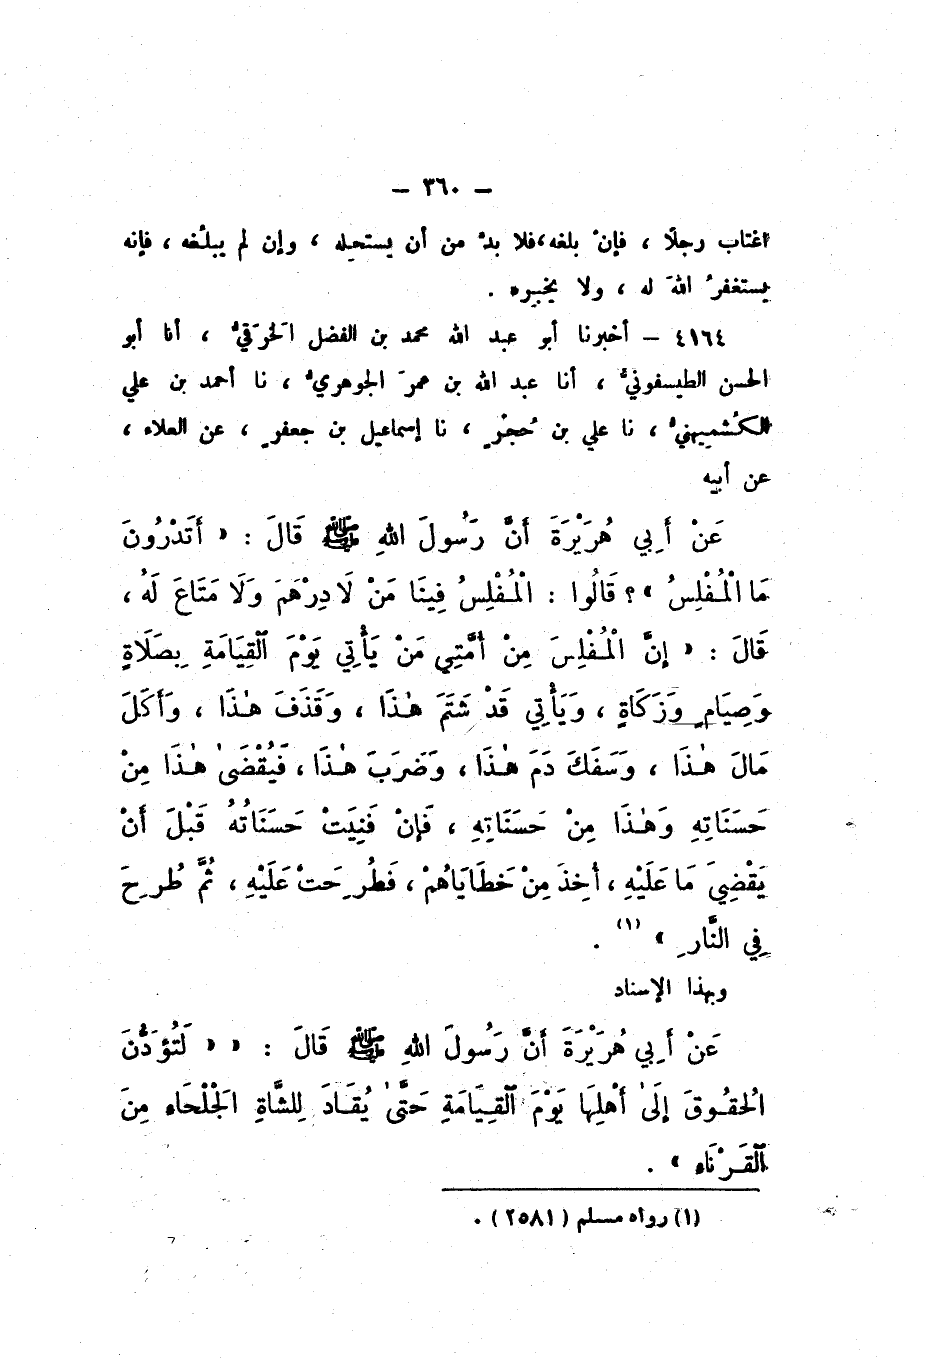 — ٣٦٠ —
اغتاب رجلًا ، فإنْ بلغه،فلا بدَّ من أن يستحله ، وإن لم يبلُغه ، فإنه
يستغفرُ اللهَ له ، ولا يخبره .
٤١٦٤ — أخبرنا أبو عبد الله محمد بن الفضل الخَرَقيُّ ، أنا أبو
الحسن الطيسفونيُّ ، أنا عبد الله بن عمرَ الجوهريُّ ، نا أحمد بن علي
الكُشميهنيُّ ، نا علي بن حُجْرٍ ، نا إسماعيل بن جعفرٍ ، عن العلاء ،
عن أبيه
عَنْ أَبِي هُرَيْرَةَ أَنَّ رَسُولَ اللهِ ﷺ قَالَ : « أَتَدْرُونَ
مَا الْمُفْلِسُ » ؟ قَالُوا : الْمُفْلِسُ فِينَا مَنْ لَا دِرْهَمَ وَلَا مَتَاعَ لَهُ ،
قَالَ : « إِنَّ الْمُفْلِسَ مِنْ أُمَّتِي مَنْ يَأْتِي يَوْمَ الْقِيَامَةِ بِصَلَاةٍ
وَصِيَامٍ وَزَكَاةٍ ، وَيَأْتِي قَدْ شَتَمَ هٰذَا ، وَقَذَفَ هٰذَا ، وَأَكَلَ
مَالَ هٰذَا ، وَسَفَكَ دَمَ هٰذَا ، وَضَرَبَ هٰذَا ، فَيُقْضَىٰ هٰذَا مِنْ
حَسَنَاتِهِ وَهٰذَا مِنْ حَسَنَاتِهِ ، فَإِنْ فَنِيَتْ حَسَنَاتُهُ قَبْلَ أَنْ
يَقْضِيَ مَا عَلَيْهِ ، أُخِذَ مِنْ خَطَايَاهُمْ ، فَطُرِحَتْ عَلَيْهِ ، ثُمَّ طُرِحَ
فِي النَّارِ » (١) .
وبهذا الإسناد
عَنْ أَبِي هُرَيْرَةَ أَنَّ رَسُولَ اللهِ ﷺ قَالَ : « « لَتُؤَدُّنَ
الْحُقُوقَ إِلَىٰ أَهْلِهَا يَوْمَ الْقِيَامَةِ حَتَّىٰ يُقَادَ لِلشَّاةِ الْجَلْحَاءِ مِنَ
الْقَرْنَاءِ » .
(١) رواه مسلم ( ٢٥٨١ ) .